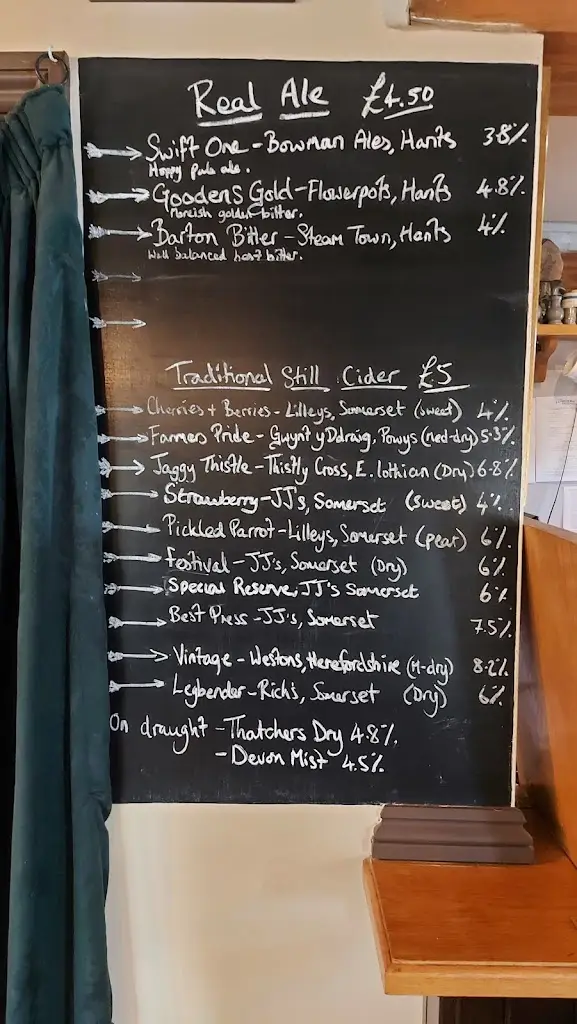 Real Ale £4.50
Swift One - Bowman Ales, Hants 3.8%
Hoppy Pale ale.
Goodens Gold - Flowerpots, Hants 4.8%
Moreish golden bitter.
Barton Bitter - Steam Town, Hants 4%
Well balanced best bitter.
Traditional Still Cider £5
Cherries + Berries - Lilleys, Somerset (sweet) 4%
Farmers Pride - Gwynt y Ddraig, Powys (med-dry) 5.3%
Jaggy Thistle - Thistly Cross, E. lothian (Dry) 6.8%
Strawberry - JJ's, Somerset (sweet) 4%
Pickled Parrot - Lilleys, Somerset (pear) 6%
Festival - JJ's, Somerset (Dry) 6%
Special Reserve, JJ's Somerset 6%
Best Press - JJ's, Somerset 7.5%
Vintage - Westons, Herefordshire (M-dry) 8.2%
Legbender - Rich's, Somerset (Dry) 6%
On draught - Thatchers Dry 4.8%.
- Devon Mist 4.5%